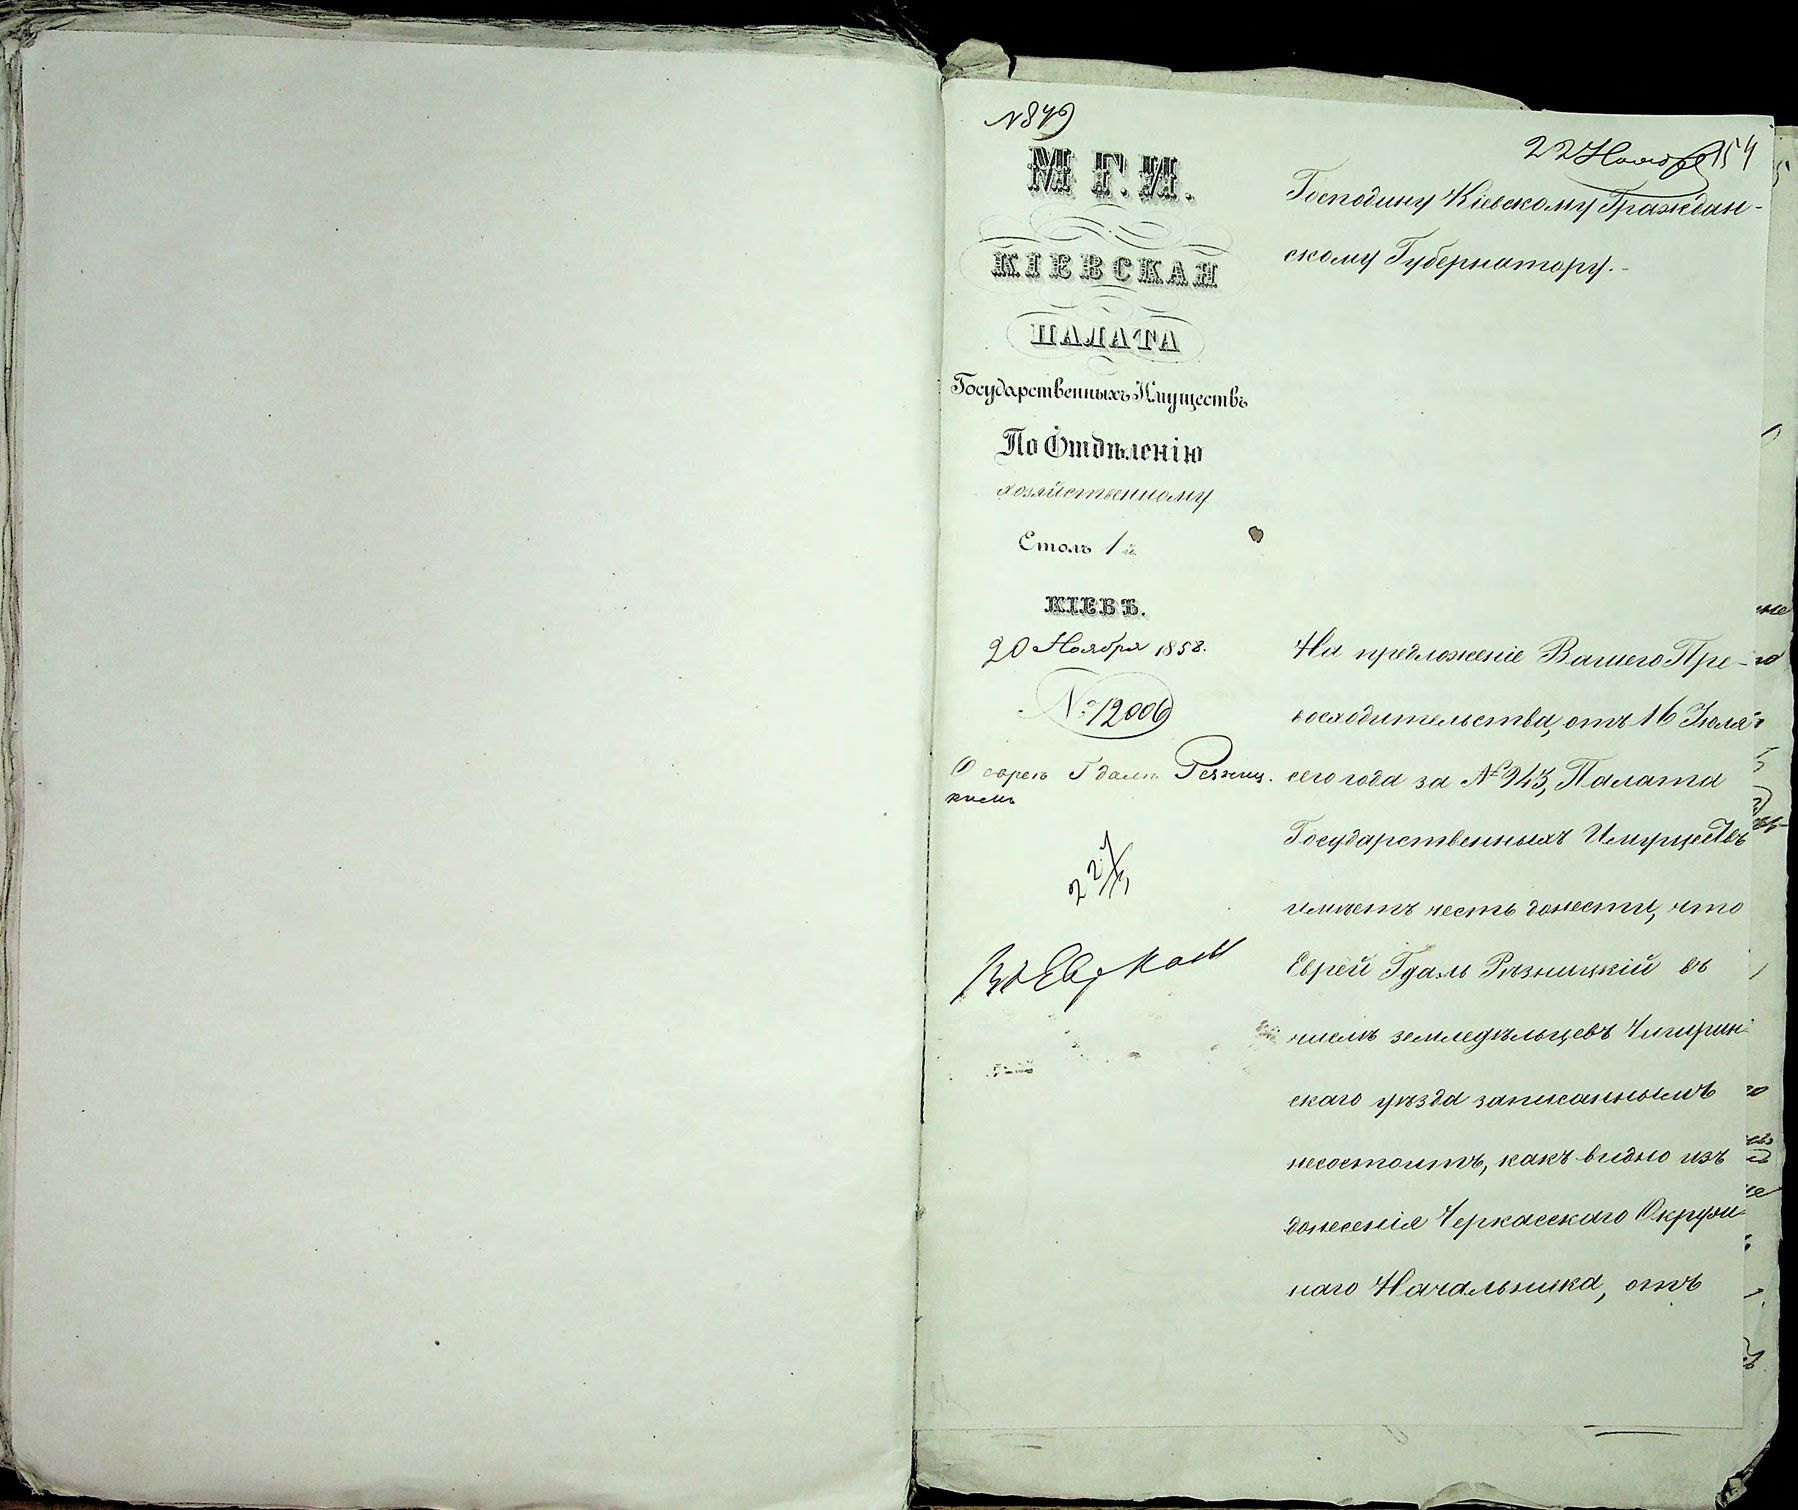 № 849
М. Г. И.
КІЕВСКАЯ
ПАЛАТА
Государственныхъ Имуществъ
По Отдѣленію
хозяйственному
Столъ 1й
КІЕВЪ.
20 Ноября 1858.
№ 12006
О евреѣ Гдалѣ Резниц-
комъ
22 Ноября 154
Господину Кіевскому Граждан-
скому Губернатору.-
На предложеніе Вашего Пре-
восходительства, отъ 16 Іюля
сего года за № 943, Палата
Государственныхъ Имуществъ
имѣетъ честь донести, что
Еврей Гдаль Рѣзницкій въ
числѣ земледѣльцевъ Чигирин-
скаго уѣзда записаннымъ
несостоитъ, какъ видно изъ
донесенія Черкасскаго Окруж-
наго Начальника, отъ